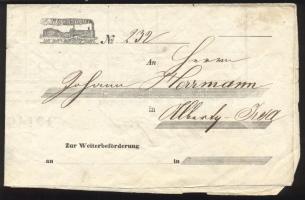 № 232
An Herrn
Johann Herrmann
in Alberty-
Zur Weiterbeförderung
an in